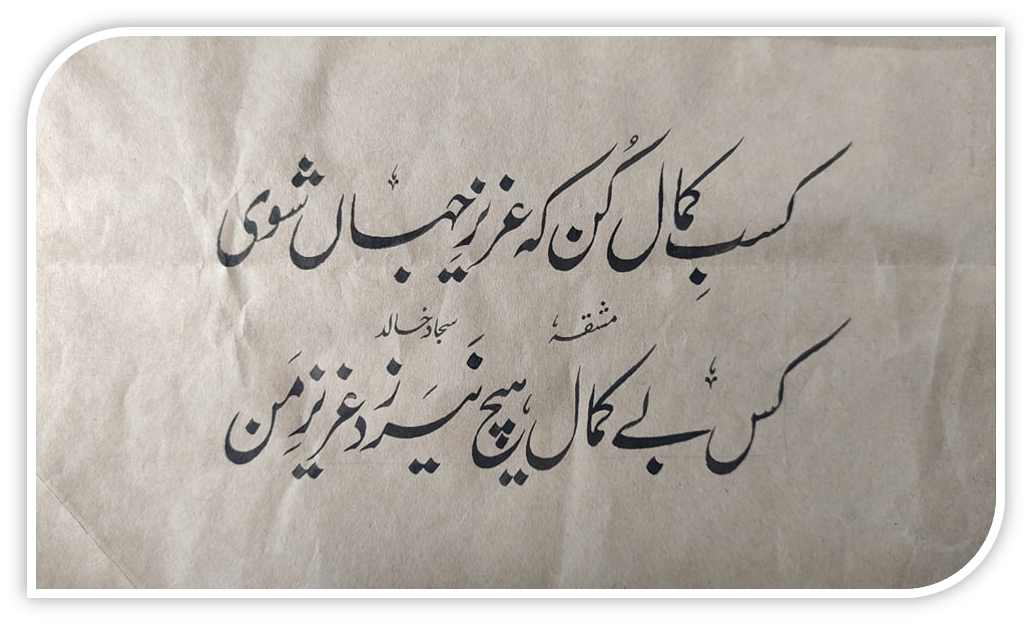 کسبِ کمال کُن کہ عزیزِ جہاں شوی
مشقہ سجاد خالد
کس بے کمال ہیچ نَیَرزد عزیزِ مَن